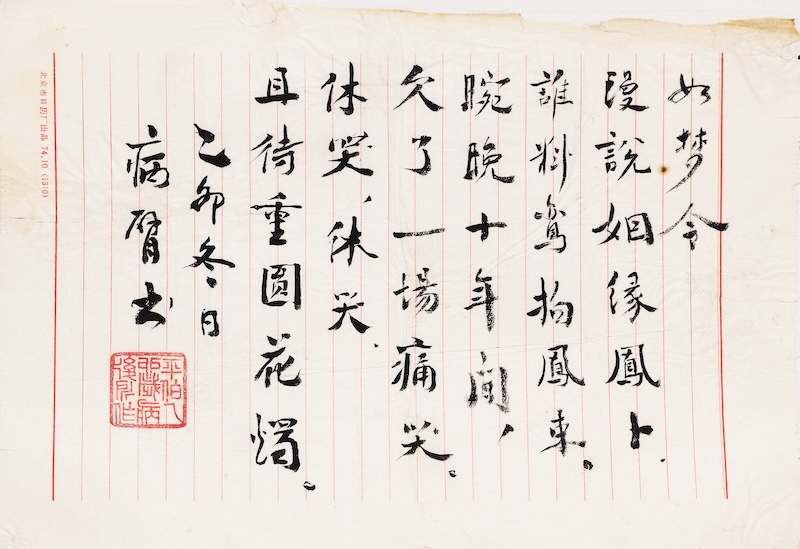 如梦令
漫說姻緣鳳卜.
誰料鸾拘鳳束。
晼晚十年間，
欠了一場痛哭。
休哭、休哭、
且待重圓花燭。
乙卯冬日
病臂书
平伯乙卯歲病後所作
北京市日历厂出品 74.10 (1310)